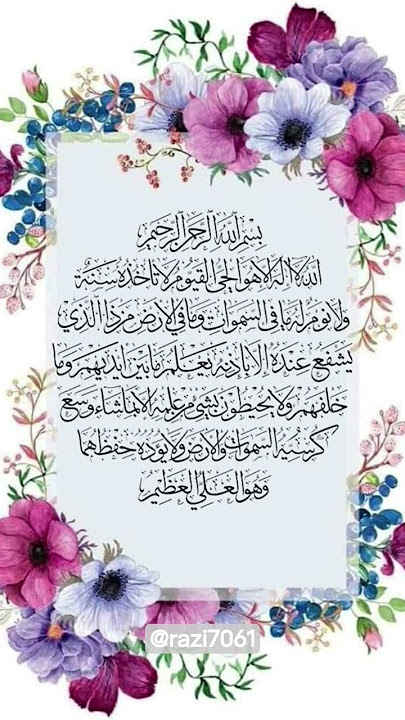 بسم الله الرحمن الرحيم
الله لا اله الا هو الحي القيوم لا تاخذه سنة
ولا نوم له ما في السموات وما في الارض من ذا الذي
يشفع عنده الا باذنه يعلم ما بين ايديهم وما
خلفهم ولا يحيطون بشيء من علمه الا بما شاء وسع
كرسيه السموات والارض ولا يوده حفظهما
وهو العلي العظيم
@razi7061